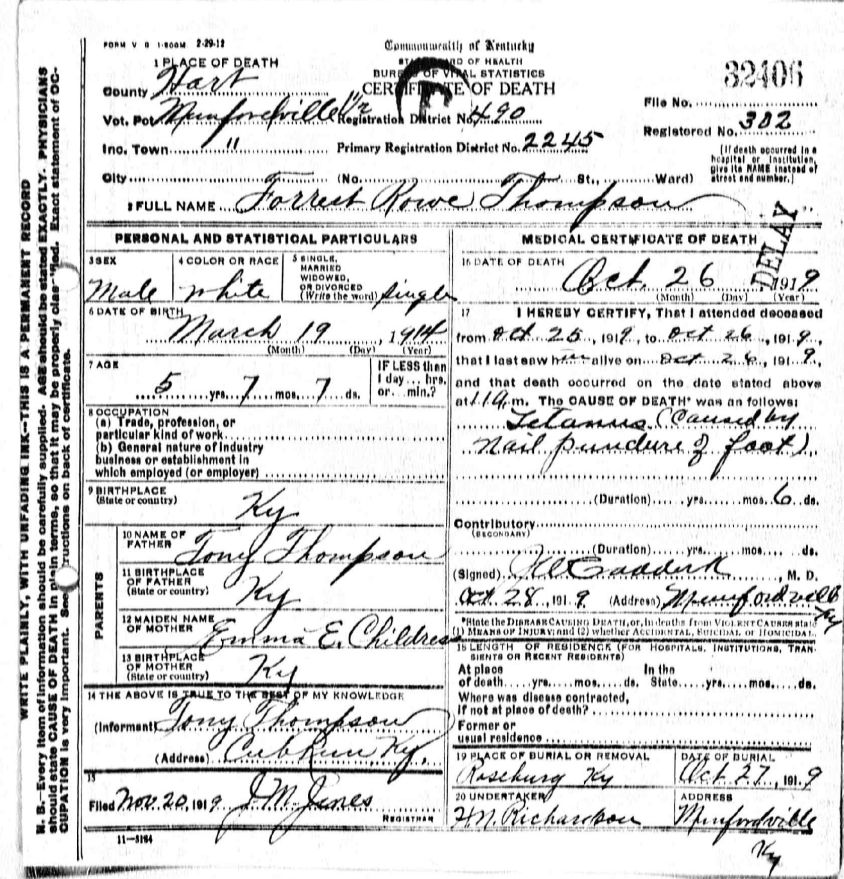 FORM V S 1-500M 2-29-12
Commonwealth of Kentucky
STATE BOARD OF HEALTH
BUREAU OF VITAL STATISTICS
CERTIFICATE OF DEATH
32406
File No.
Registered No. 382
[If death occurred in a hospital or institution, give its NAME instead of street and number.]
1 PLACE OF DEATH
County Hart
Vot. Pct Munfordville 1 1/2 Registration District No. 490
Inc. Town " Primary Registration District No. 2245
City (No. St., Ward)
2 FULL NAME Forrest Rowe Thompson
PERSONAL AND STATISTICAL PARTICULARS
3 SEX Male
4 COLOR OR RACE White
5 SINGLE, MARRIED WIDOWED, OR DIVORCED (Write the word) Single
6 DATE OF BIRTH
March 19 1914
(Month) (Day) (Year)
7 AGE
5 yrs. 7 mos. 7 ds.
IF LESS than 1 day... hrs. or... min.?
8 OCCUPATION
(a) Trade, profession, or particular kind of work
(b) General nature of industry
business or establishment in
which employed (or employer)
9 BIRTHPLACE
(State or country) Ky
PARENTS
10 NAME OF FATHER Tony Thompson
11 BIRTHPLACE OF FATHER (State or country) Ky
12 MAIDEN NAME OF MOTHER Emma E. Childress
13 BIRTHPLACE OF MOTHER (State or country) Ky
14 THE ABOVE IS TRUE TO THE BEST OF MY KNOWLEDGE
(Informant) Tony Thompson
(Address) Cub Run, Ky.
15
Filed Nov. 20, 1919 J. M. Jones
REGISTRAR
11-5184
MEDICAL CERTIFICATE OF DEATH
DELAY
16 DATE OF DEATH
Oct. 26 1919
(Month) (Day) (Year)
17 I HEREBY CERTIFY, That I attended deceased
from Oct 25, 1919, to Oct 26, 1919,
that I last saw him alive on Oct 26, 1919,
and that death occurred on the date stated above
at 11 a m. The CAUSE OF DEATH* was as follows:
Tetanus (caused by
nail puncture of foot)
(Duration) yrs. mos. 6 ds.
Contributory
(SECONDARY)
(Duration) yrs. mos. ds.
(Signed) , M. D.
Oct 28, 1919 (Address) Munfordville Ky
*State the DISEASE CAUSING DEATH, or, in deaths from VIOLENT CAUSES state
(1) MEANS OF INJURY; and (2) whether ACCIDENTAL, SUICIDAL or HOMICIDAL.
18 LENGTH OF RESIDENCE (FOR HOSPITALS, INSTITUTIONS, TRANSIENTS OR RECENT RESIDENTS)
At place of death yrs. mos. ds. In the State yrs. mos. ds.
Where was disease contracted,
If not at place of death?
Former or
usual residence
19 PLACE OF BURIAL OR REMOVAL
Roseburg Ky
DATE OF BURIAL
Oct 27, 1919
20 UNDERTAKER
H. N. Richardson
ADDRESS
Munfordville
Ky
WRITE PLAINLY, WITH UNFADING INK—THIS IS A PERMANENT RECORD
N. B.—Every item of information should be carefully supplied. AGE should be stated EXACTLY. PHYSICIANS
should state CAUSE OF DEATH in plain terms, so that it may be properly classified. Exact statement of OC-
CUPATION is very important. See instructions on back of certificate.